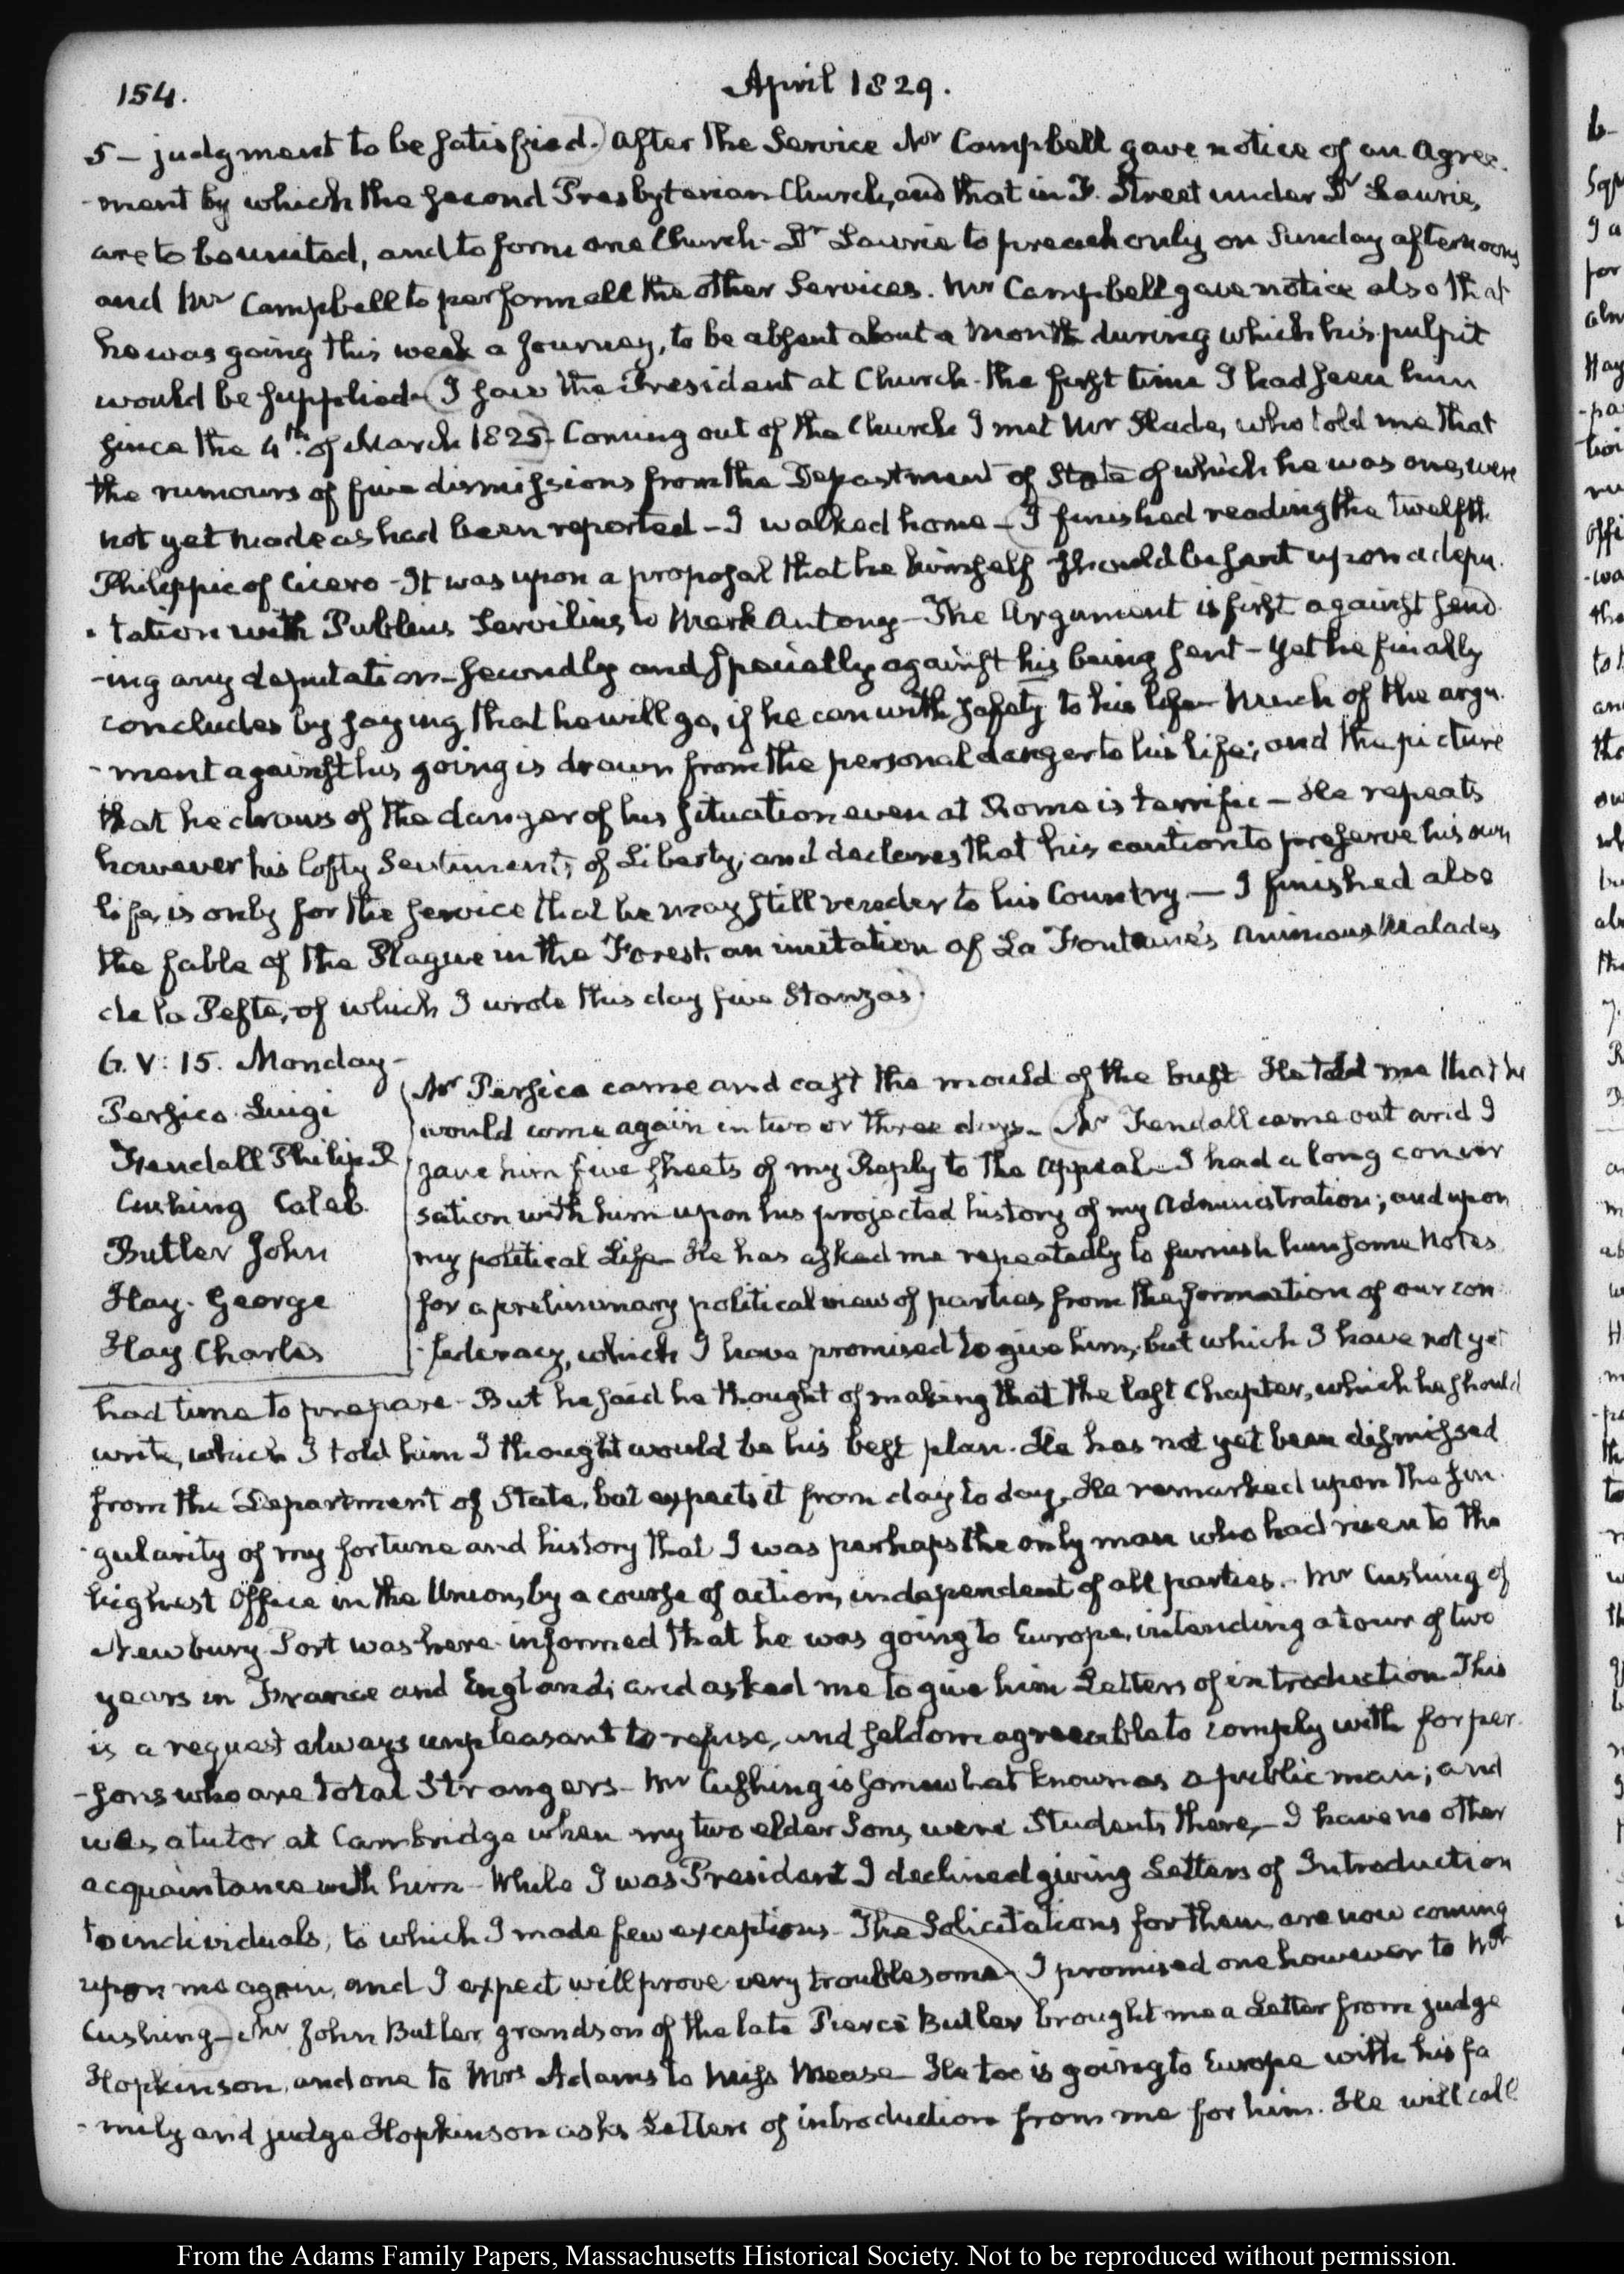 154.
April 1829.
5 - judgment to be satisfied.) After the Service Mr Campbell gave notice of an Agree-
-ment by which the second Presbyterian Church, and that in F. Street under Dr Laurie,
are to be united, and to form one Church - Dr Laurie to preach only on Sunday afternoons
and Mr Campbell to perform all the other Services. Mr Campbell gave notice also that
he was going this week a Journey, to be absent about a Month during which his pulpit
would be supplied - (I saw the President at Church - the first time I had seen him
since the 4th. of March 1825) - Coming out of the Church I met Mr Slade, who told me that
the rumours of five dismissions from the Department of State of which he was one, were
not yet made as had been reported - I walked home - (I finished reading the twelfth
Philippic of Cicero - It was upon a proposal that he himself should be sent upon a depu-
-tation with Publius Servilius to Mark Antony - The Argument is first against send-
-ing any deputation - secondly and specially against his being sent - Yet he finally
concludes by saying that he will go, if he can with safety to his life - Much of the argu-
-ment against his going is drawn from the personal danger to his life; and the picture
that he draws of the danger of his situation even at Rome is terrific - He repeats
however his lofty Sentiments of Liberty; and declares that his caution to preserve his own
life, is only for the service that he may still render to his Country. - I finished also
the fable of the Plague in the Forest, an imitation of La Fontaine's Animaux Malades
de la Peste, of which I wrote this day five Stanzas).
6. V: 15. Monday -
Persico Luigi
Fendall Philip R
Cushing Caleb
Butler John
Hay. George
Hay Charles
Mr Persico came and cast the mould of the bust He told me that he
would come again in two or three days - (Mr Fendall came out and I
gave him five sheets of my Reply to the Appeal - I had a long conver
sation with him upon his projected history of my Administration; and upon
my political Life - He has asked me repeatedly to furnish him some Notes
for a preliminary political view of parties from the formation of our con-
-federacy, which I have promised to give him, but which I have not yet
had time to prepare - But he said he thought of making that the last Chapter, which he should
write, which I told him I thought would be his best plan. He has not yet been dismissed
from the Department of State, but expects it from day to day. He remarked upon the sin-
-gularity of my fortune and history that I was perhaps the only man who had risen to the
highest Office in the Union, by a course of action, independent of all parties. - Mr Cushing of
Newbury-Port was here informed that he was going to Europe, intending a tour of two
years in France and England; and asked me to give him Letters of introduction This
is a request always unpleasant to refuse, and seldom agreeable to comply with for per-
-sons who are total Strangers - Mr Cushing is somewhat known as a public man; and
was a tutor at Cambridge when my two elder Sons were Students there, - I have no other
acquaintance with him - While I was President I declined giving Letters of Introduction
to individuals, to which I made few exceptions - The Solicitations for them are now coming
upon me again, and I expect will prove very troublesome - I promised one however to Mr
Cushing -) Mr John Butler grandson of the late Pierce Butler brought me a Letter from judge
Hopkinson, and one to Mrs Adams to Miss Mease - He too is going to Europe with his fa
-mily and judge Hopkinson asks Letters of introduction from me for him. He will call
From the Adams Family Papers, Massachusetts Historical Society. Not to be reproduced without permission.